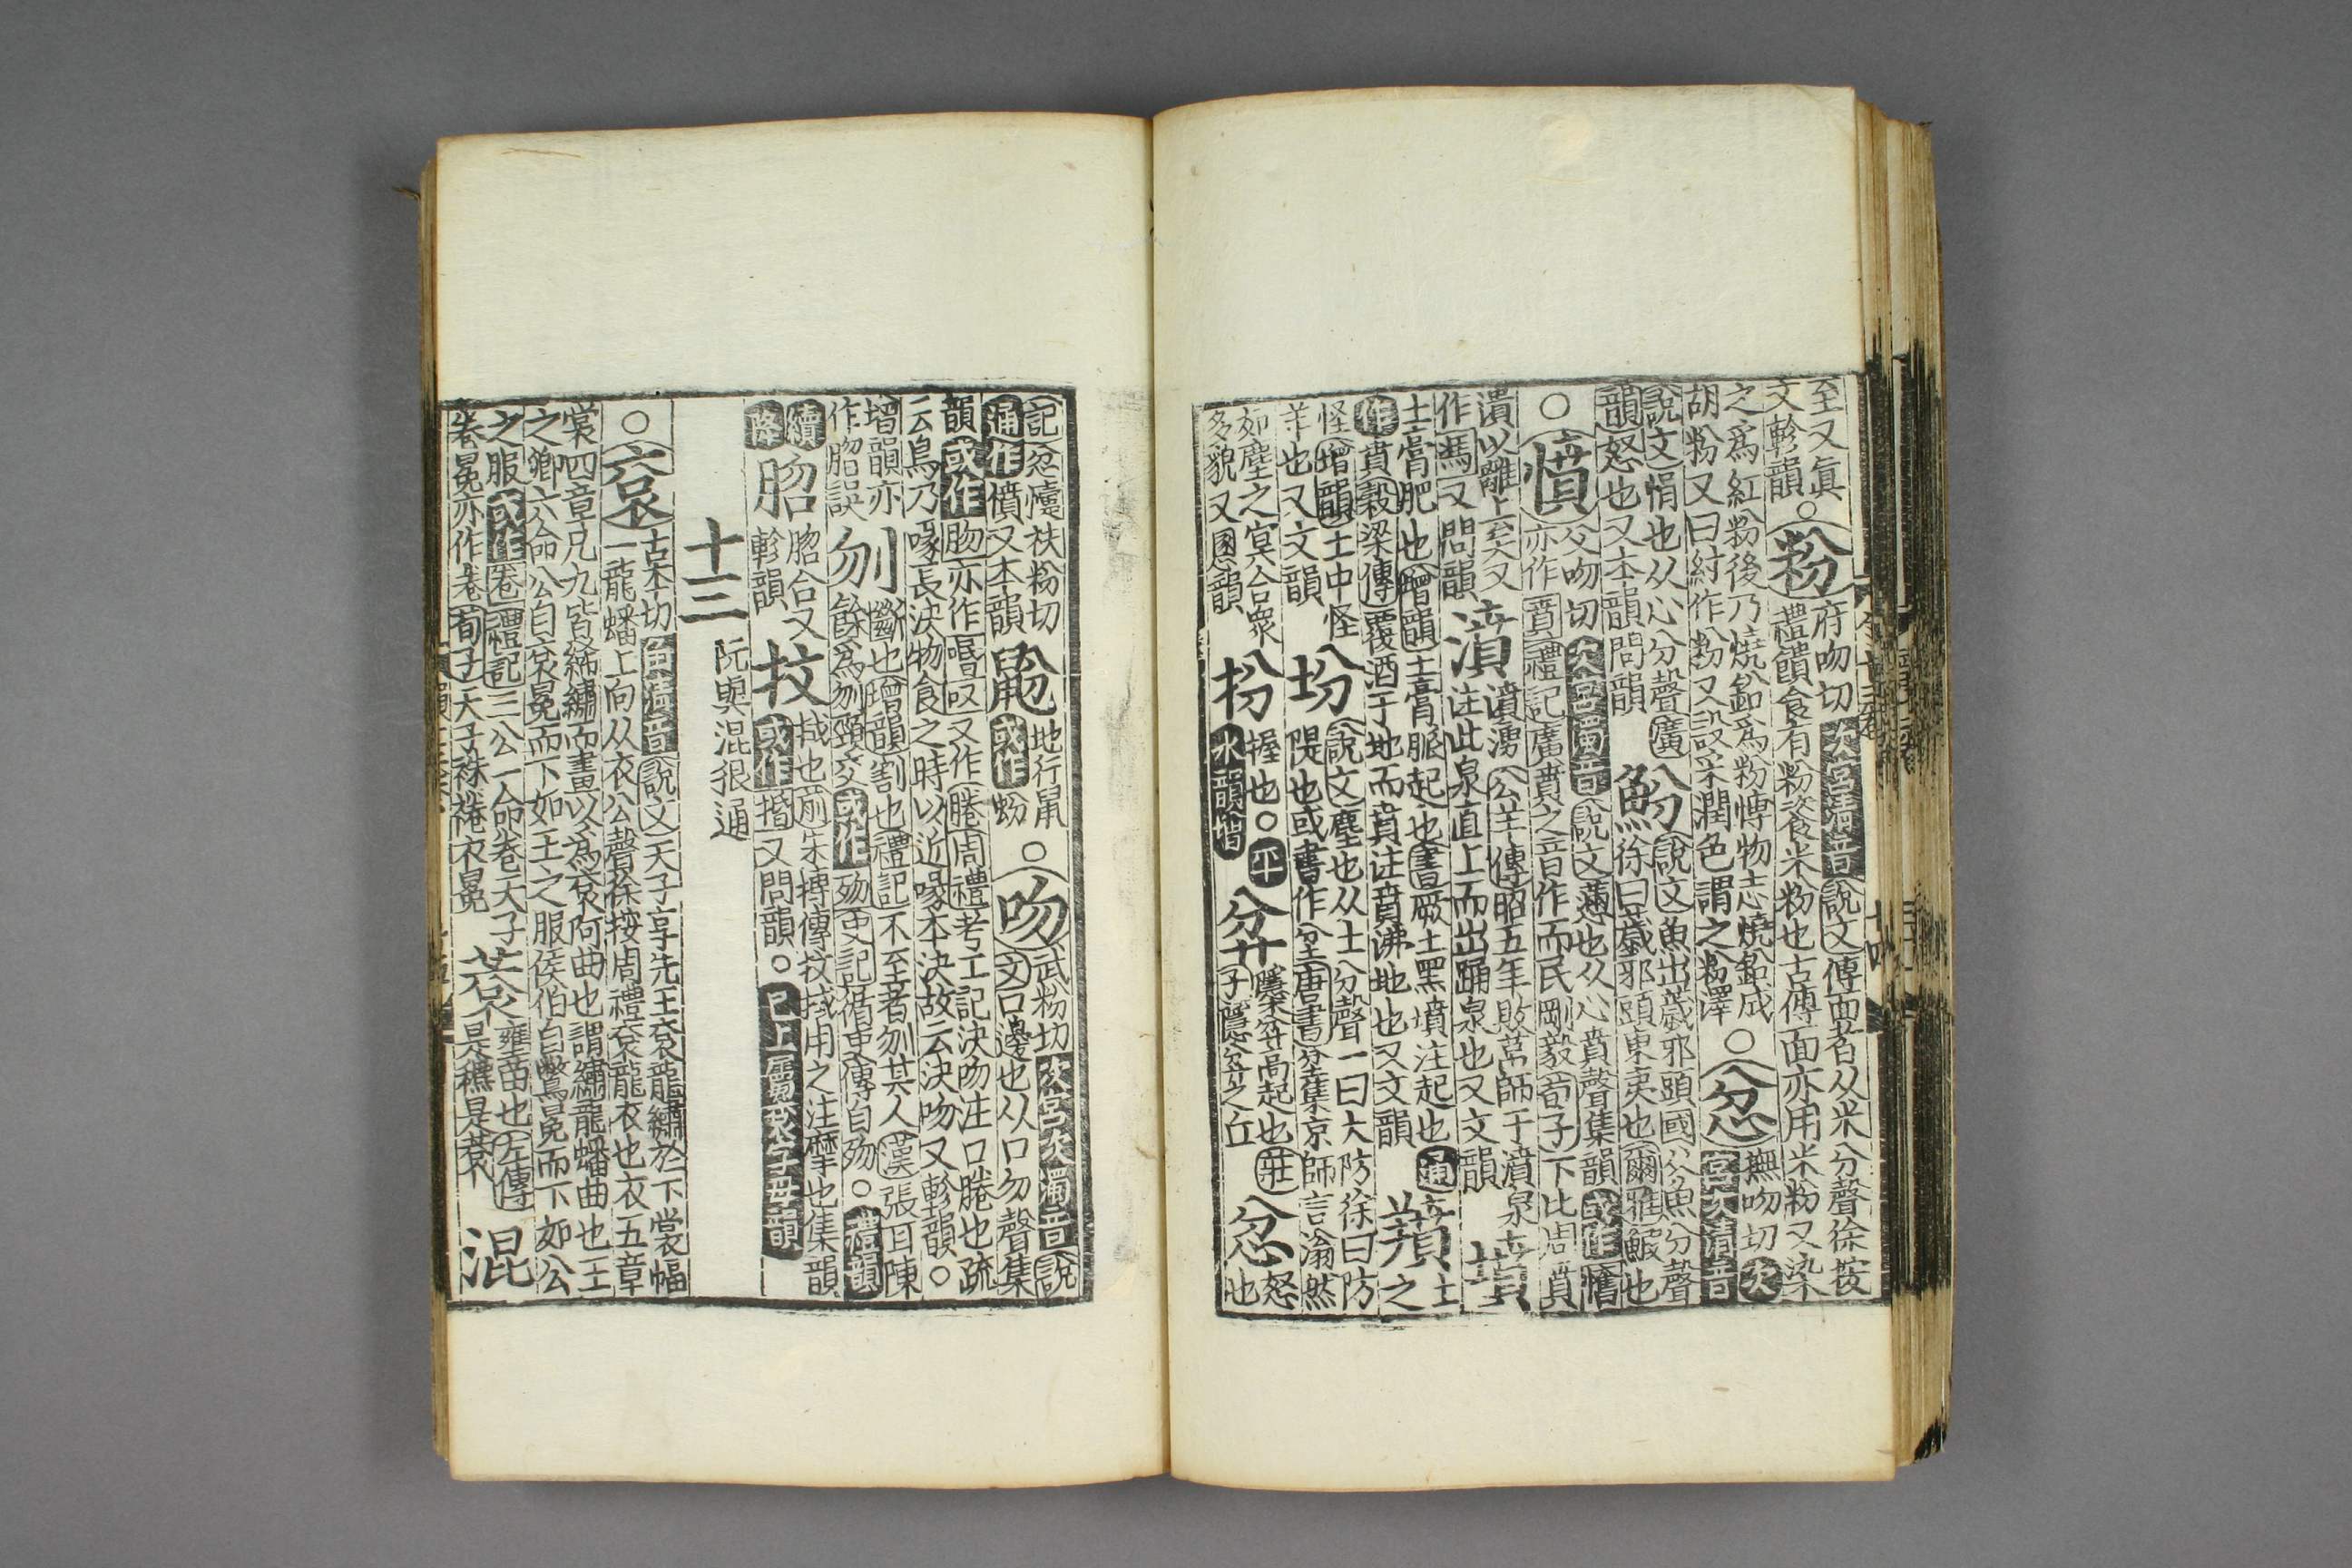 至又眞
文軫韻○粉府吻切次宮清音說文傅面者从米分聲徐按
禮饋食有粉餈米粉也古傅面亦用米粉又染
之爲紅粉後乃燒鉛爲粉博物志燒鉛成
胡粉又曰紂作粉又設采潤色謂之粉澤○忿撫吻切次
宮次清音
說文悁也从心分聲廣
韻怒也又本韻問韻魵說文魚出薉邪頭國从魚分聲
徐曰薉邪頭東夷也爾雅鰕也
○憤父吻切次宮濁音說文懣也从心賁聲集韻或作㥃
亦作賁禮記廣賁之音作而民剛毅荀子下比周賁
潰以離上矣又
作馮又問韻濆濆湧公羊傳昭五年敗莒師于濆泉
注此泉直上而出踊泉也又文韻墳土
之
土膏肥也增韻土膏脈起也書厥土黑墳注起也通
作賁穀梁傳覆酒于地而賁注賁沸地也又文韻蕡
怪增韻土中怪
羊也又文韻坋說文塵也从土分聲一曰大防徐曰防
隄也或書作坌唐書坌集京師言滃然
如塵之㝠合衆
多貌又慁韻扮握也○平
水韻增弅隱弅高起也莊
子隱弅之丘忿怒
也
記忿懥扶粉切
通作憤又本韻鼢地行鼠
或作蚡○吻武粉切次宮次濁音說
文口邊也从口勿聲集
韻或作肳亦作㖧呅又作脗周禮考工記決吻注口脗也疏
云鳥乃喙長決物食之時以近喙本決故云決吻又軫韻○
增韻亦
作脗誤刎斷也增韻割也禮記不至者刎其人漢張耳陳
餘爲刎頸交或作歾史記循吏傳自歾○禮韻
續
降脗脗合又
軫韻抆拭也前朱博傳抆拭用之注摩也集韻
或作㨉又問韻○已上屬袞字母韻
十三阮與混很通
○袞古本切角清音說文天子享先王袞龍繡於下裳幅
一龍蟠上向从衣公聲徐按周禮袞龍衣也衣五章
裳四章凡九皆絺繡而畫以爲袞阿曲也謂繡龍蟠曲也王
之卿六命公自袞冕而下如王之服侯伯自鷩冕而下如公
之服或作卷禮記三公一命卷天子
卷冕亦作裷荀子天子袾裷衣冕蓘壅苗也左傳
是穮是蓘混